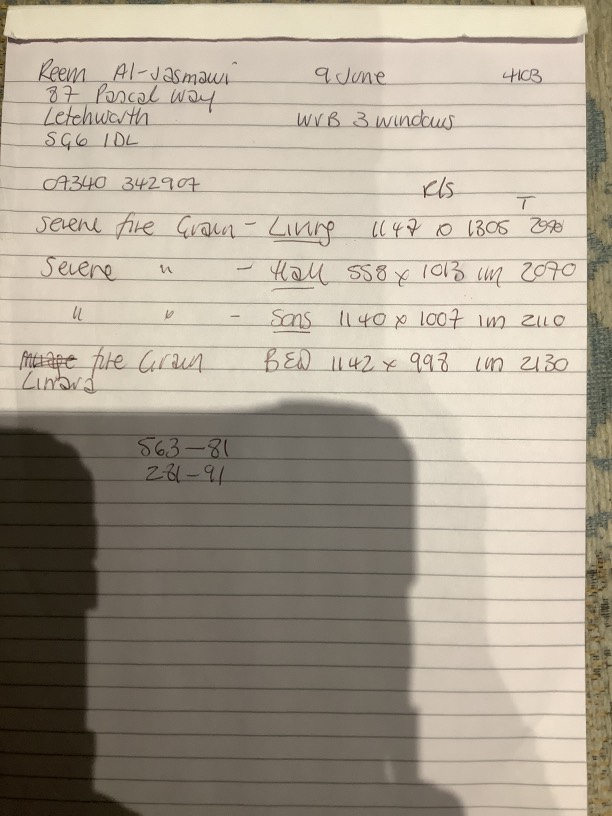 Reem Al-Jasmawi 9 June 4103
87 Pascal Way
Letchworth WVB 3 windows
SG6 1DL
07340 342907 Rls
T
Severe fire Grain - Living 1147 x 1305 2090
Severe " - Hall 558 x 1013 1m 2070
" " - Sons 1140 x 1007 1m 2110
fire Grain BED 1142 x 998 1m 2130
563-81
281-91